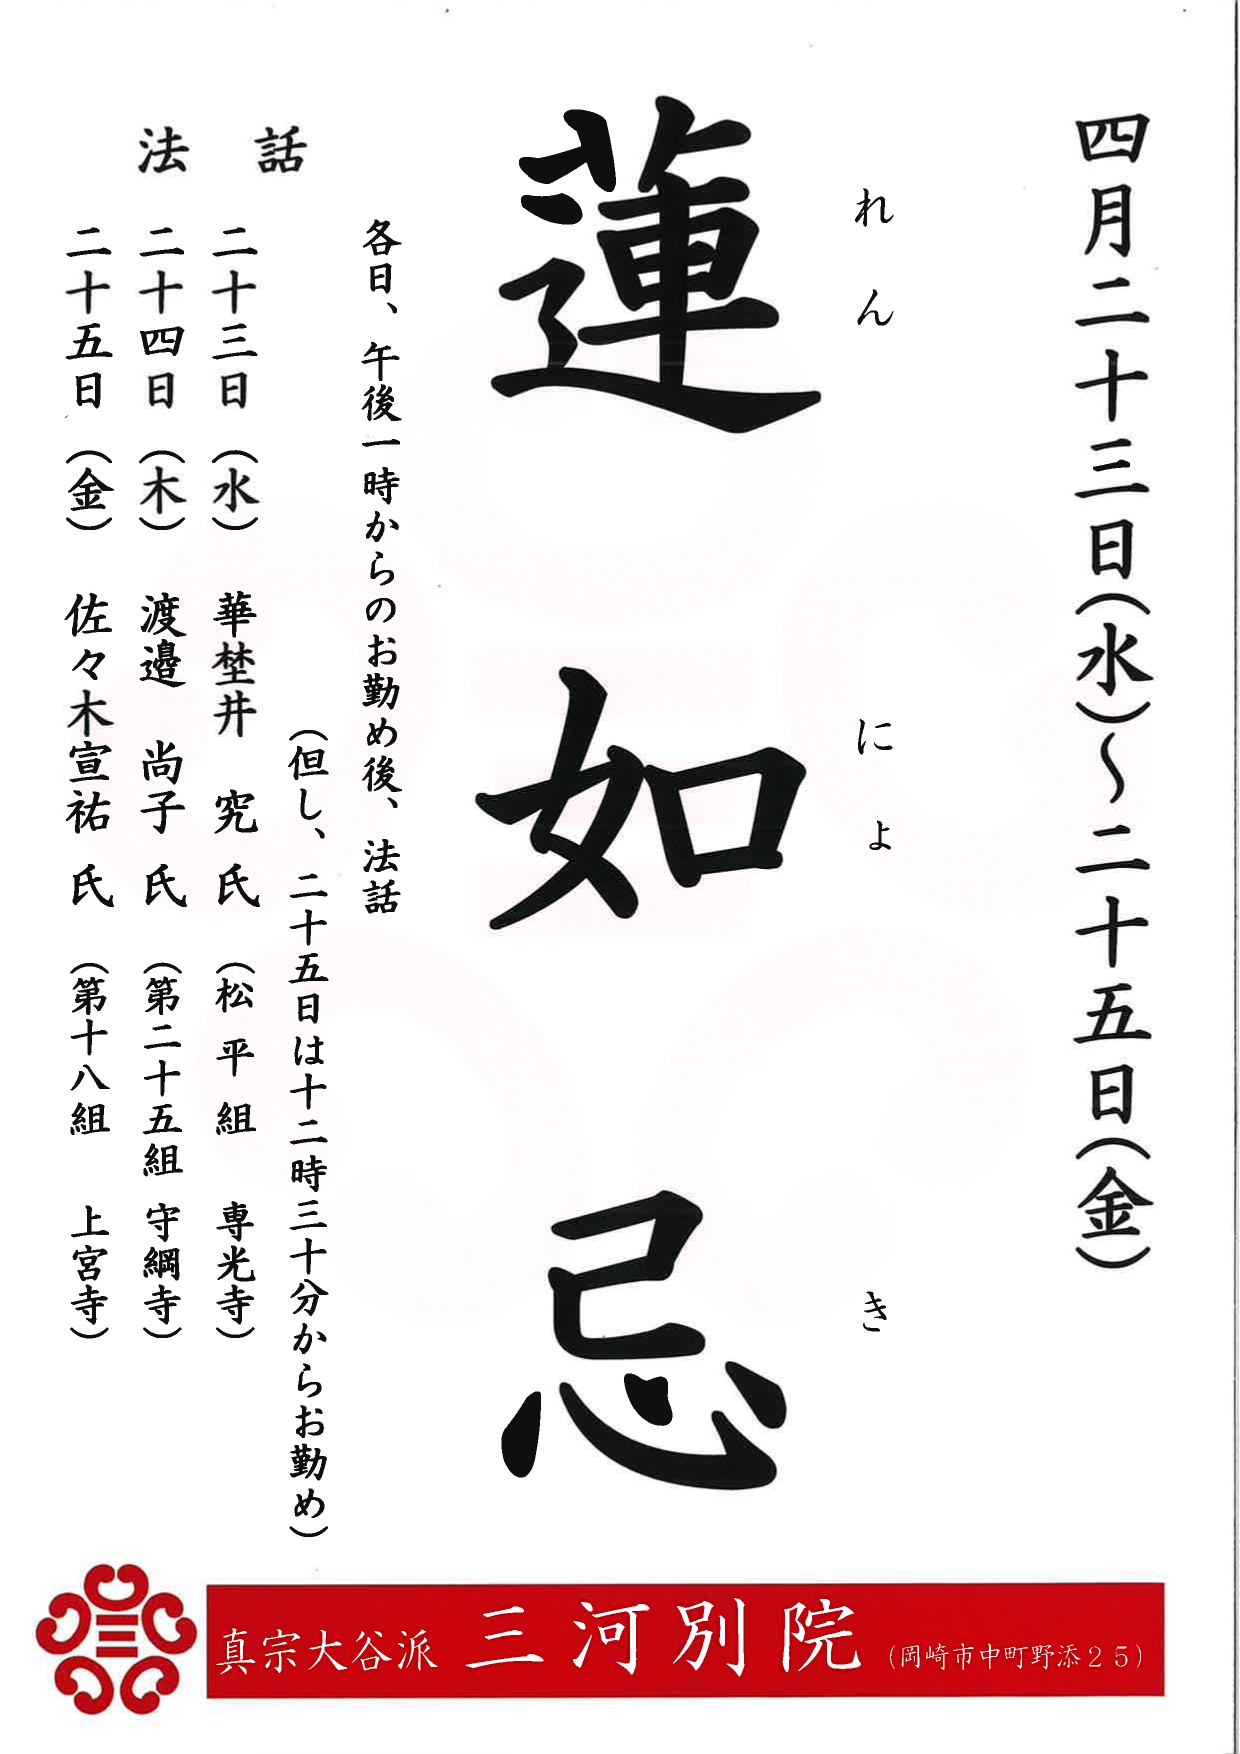 四月二十三日(水)～二十五日(金)
れんにょき
蓮如忌
各日、午後一時からのお勤め後、法話
(但し、二十五日は十二時三十分からお勤め)
法話
二十三日(水) 華埜井 究 氏 (松平組 専光寺)
二十四日(木) 渡邉 尚子 氏 (第二十五組 守綱寺)
二十五日(金) 佐々木宣祐 氏 (第十八組 上宮寺)
真宗大谷派 三河別院 (岡崎市中町野添25)